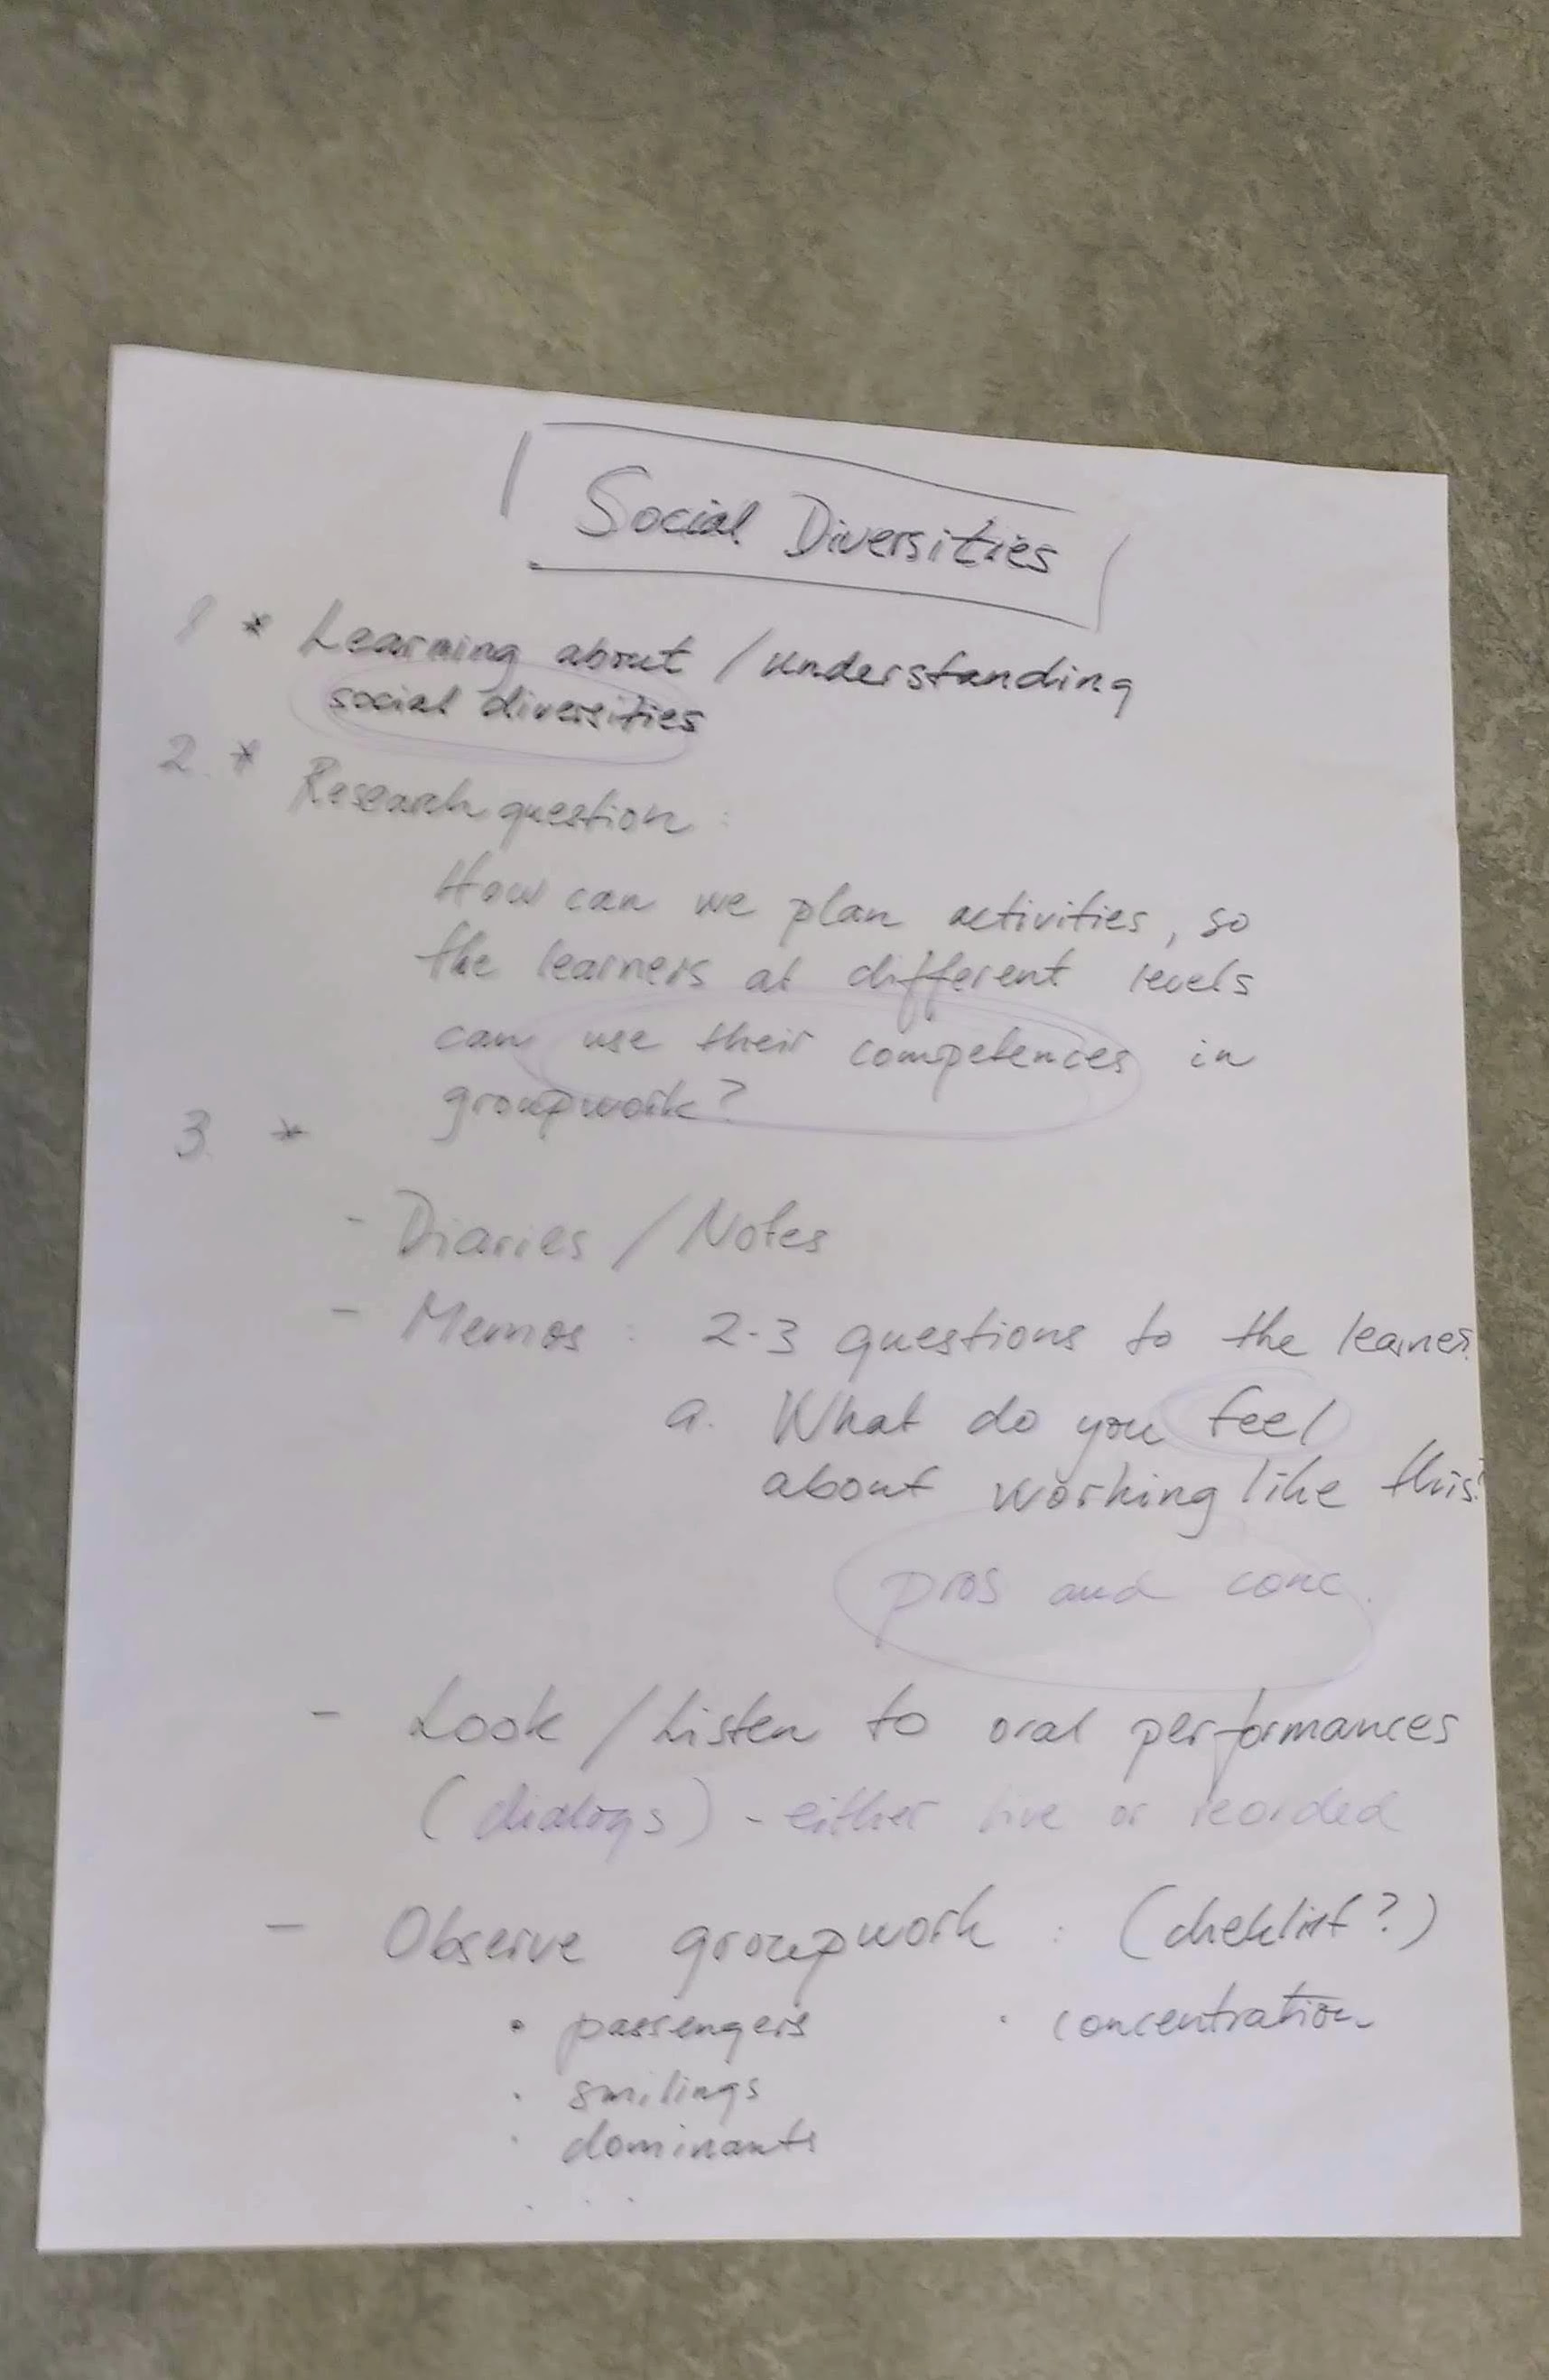 Social Diversities
1 * Learning about / understanding
social diversities
2. * Research question :
How can we plan activities, so
the learners at different levels
can use their competences in
groupwork?
3. *
- Diaries / Notes
- Memos : 2-3 questions to the learners
a. What do you feel
about working like this?
pros and conc.
- Look / Listen to oral performances
(dialogs) - either live or recorded
- Observe groupwork : (cheklist?)
• passengers • concentration
• smilings
• dominants
. . .